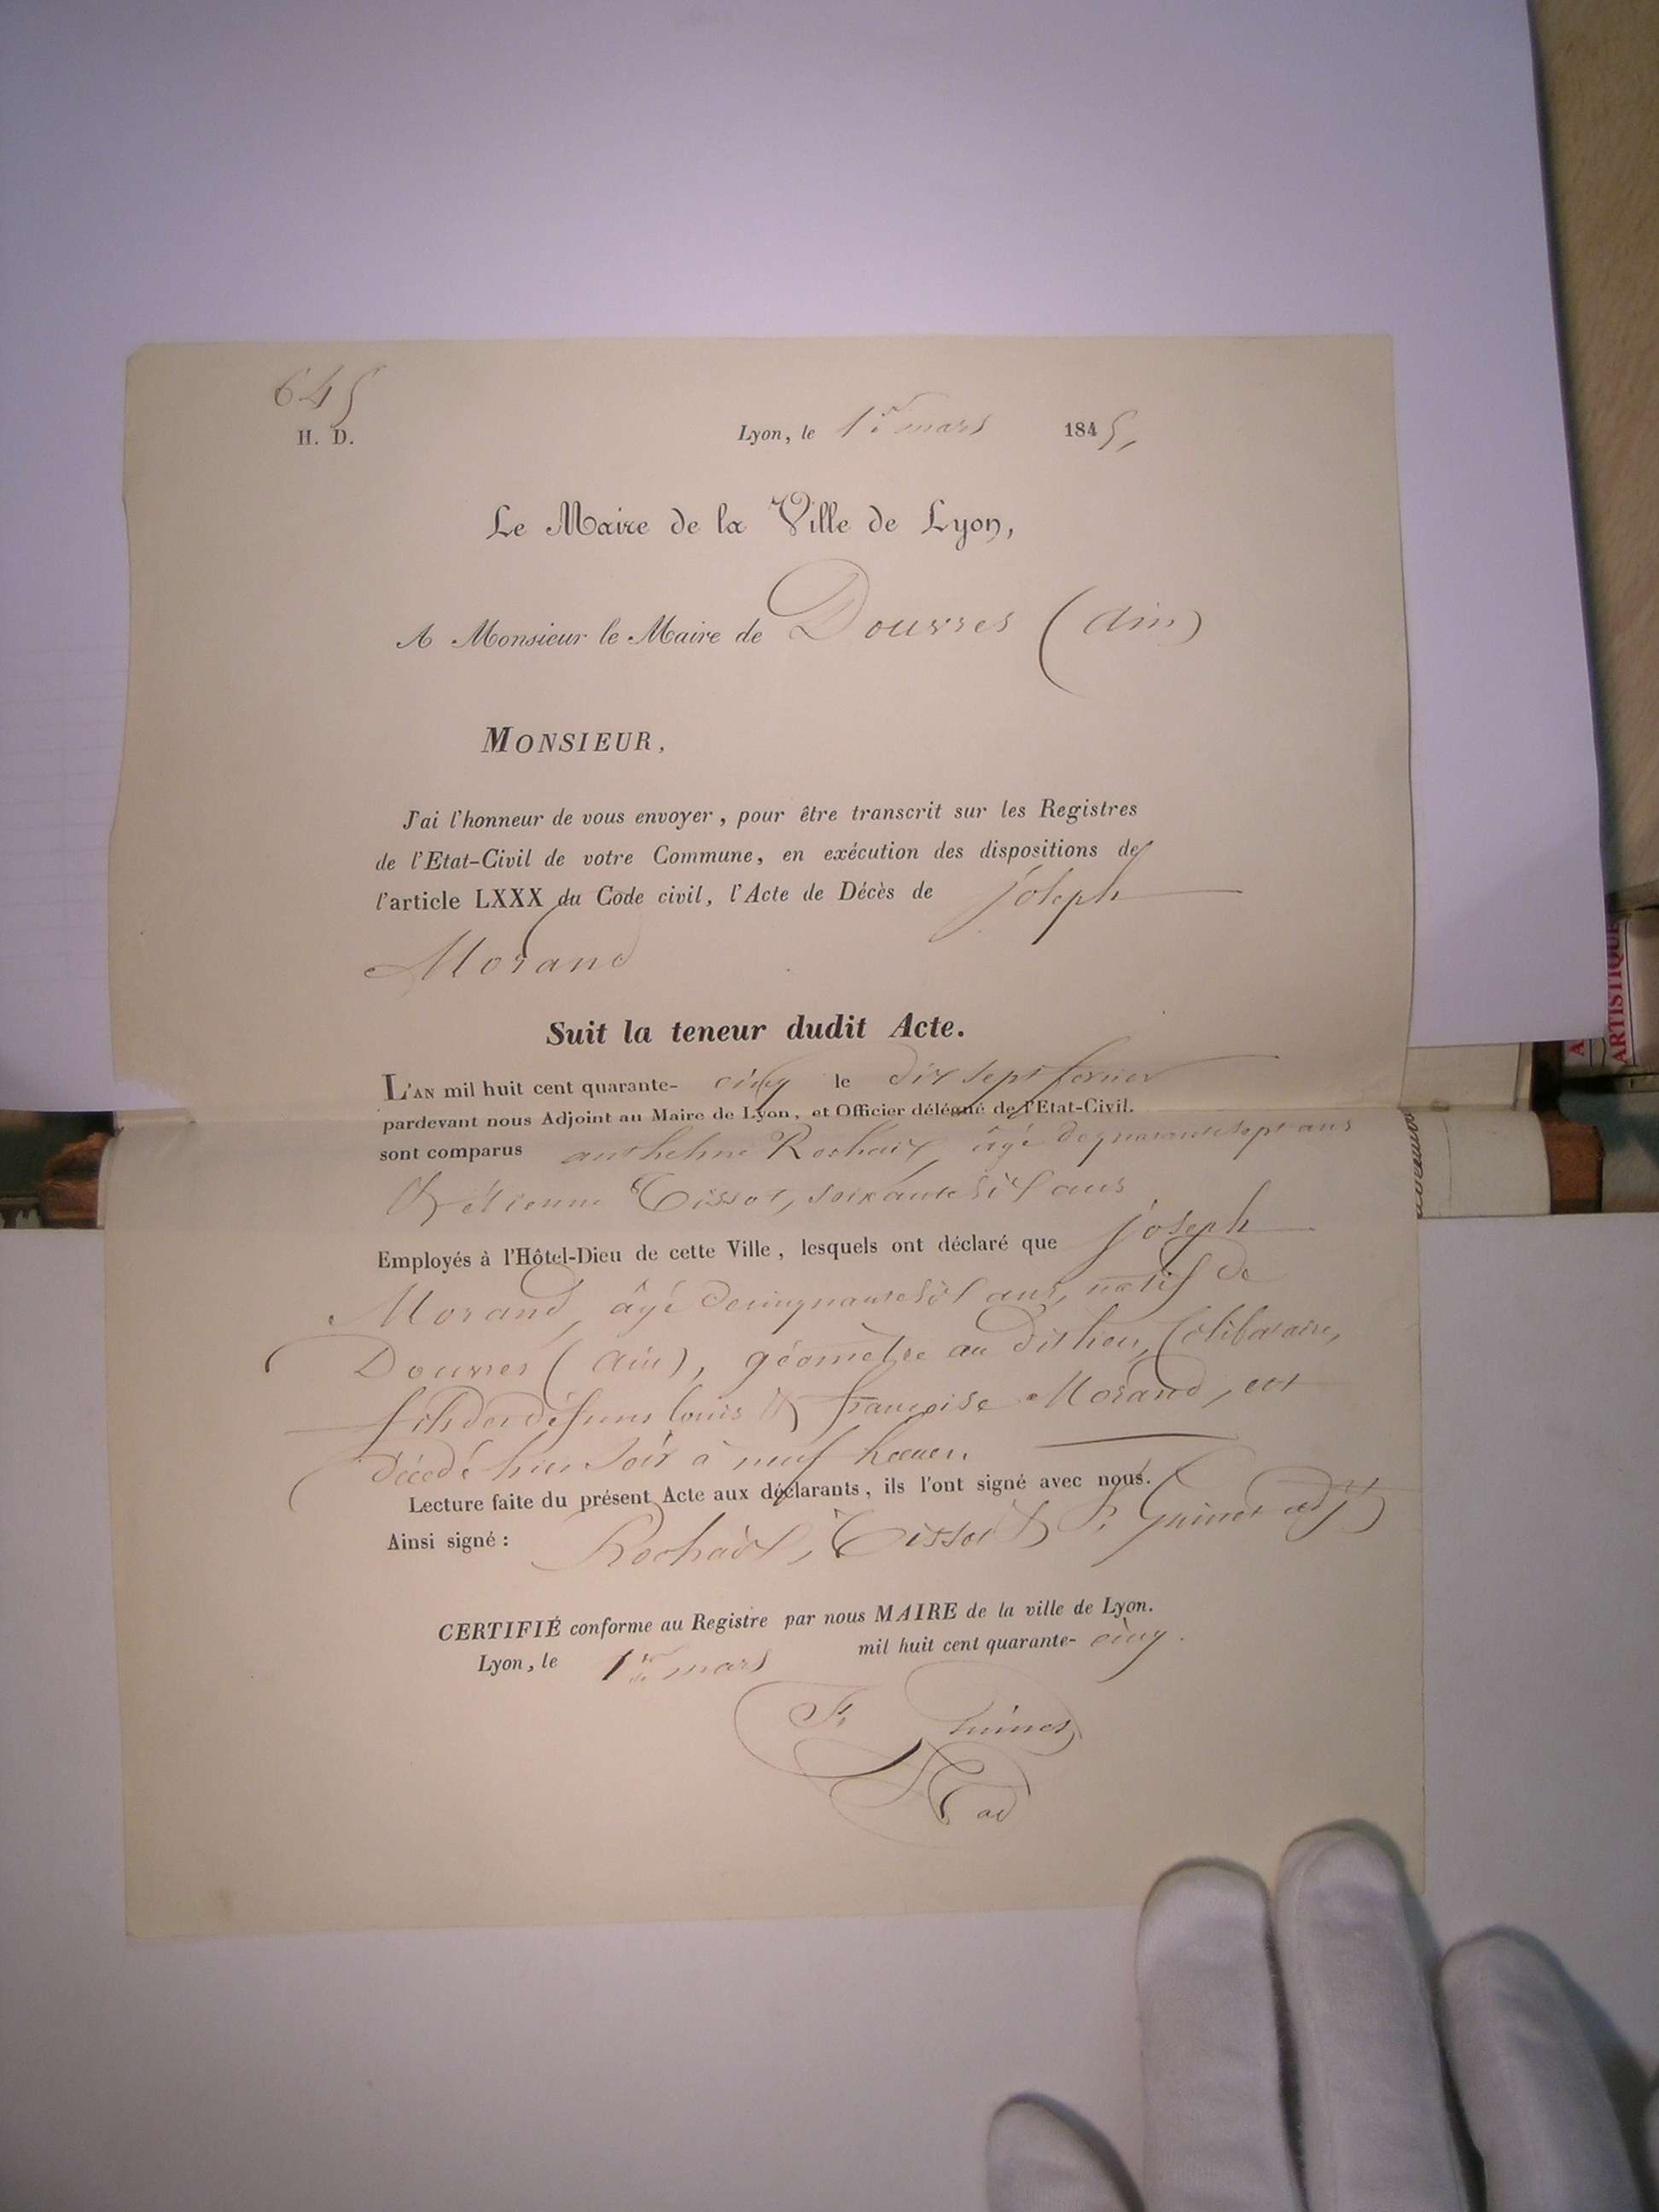 645
H. D.
Lyon, le 1er mars 1845,
Le Maire de la Ville de Lyon,
A Monsieur le Maire de Douvres (Ain)
MONSIEUR,
J'ai l'honneur de vous envoyer, pour être transcrit sur les Registres
de l'Etat-Civil de votre Commune, en exécution des dispositions de
l'article LXXX du Code civil, l'Acte de Décès de joseph
Morand
Suit la teneur dudit Acte.
L'AN mil huit cent quarante- cinq le dix sept février
pardevant nous Adjoint au Maire de Lyon, et Officier délégué de l'Etat-Civil.
sont comparus anthelme Rochaix, âgé de quarante sept ans
& étienne Tissot, soixante dix ans
Employés à l'Hôtel-Dieu de cette Ville, lesquels ont déclaré que joseph
Morand, âgé de cinquante dix ans, natif de
Douvres (Ain), géomètre au dit lieu, Célibataire,
fils des défunts louis & françoise Morand, est
décédé hier soir à neuf heures.
Lecture faite du présent Acte aux déclarants, ils l'ont signé avec nous.
Ainsi signé : Rochaix, Tissot & F. Guinet adjt
CERTIFIÉ conforme au Registre par nous MAIRE de la ville de Lyon.
Lyon, le 1er mars mil huit cent quarante- cinq.
F. Guinet
ad
ARTISTIQUE